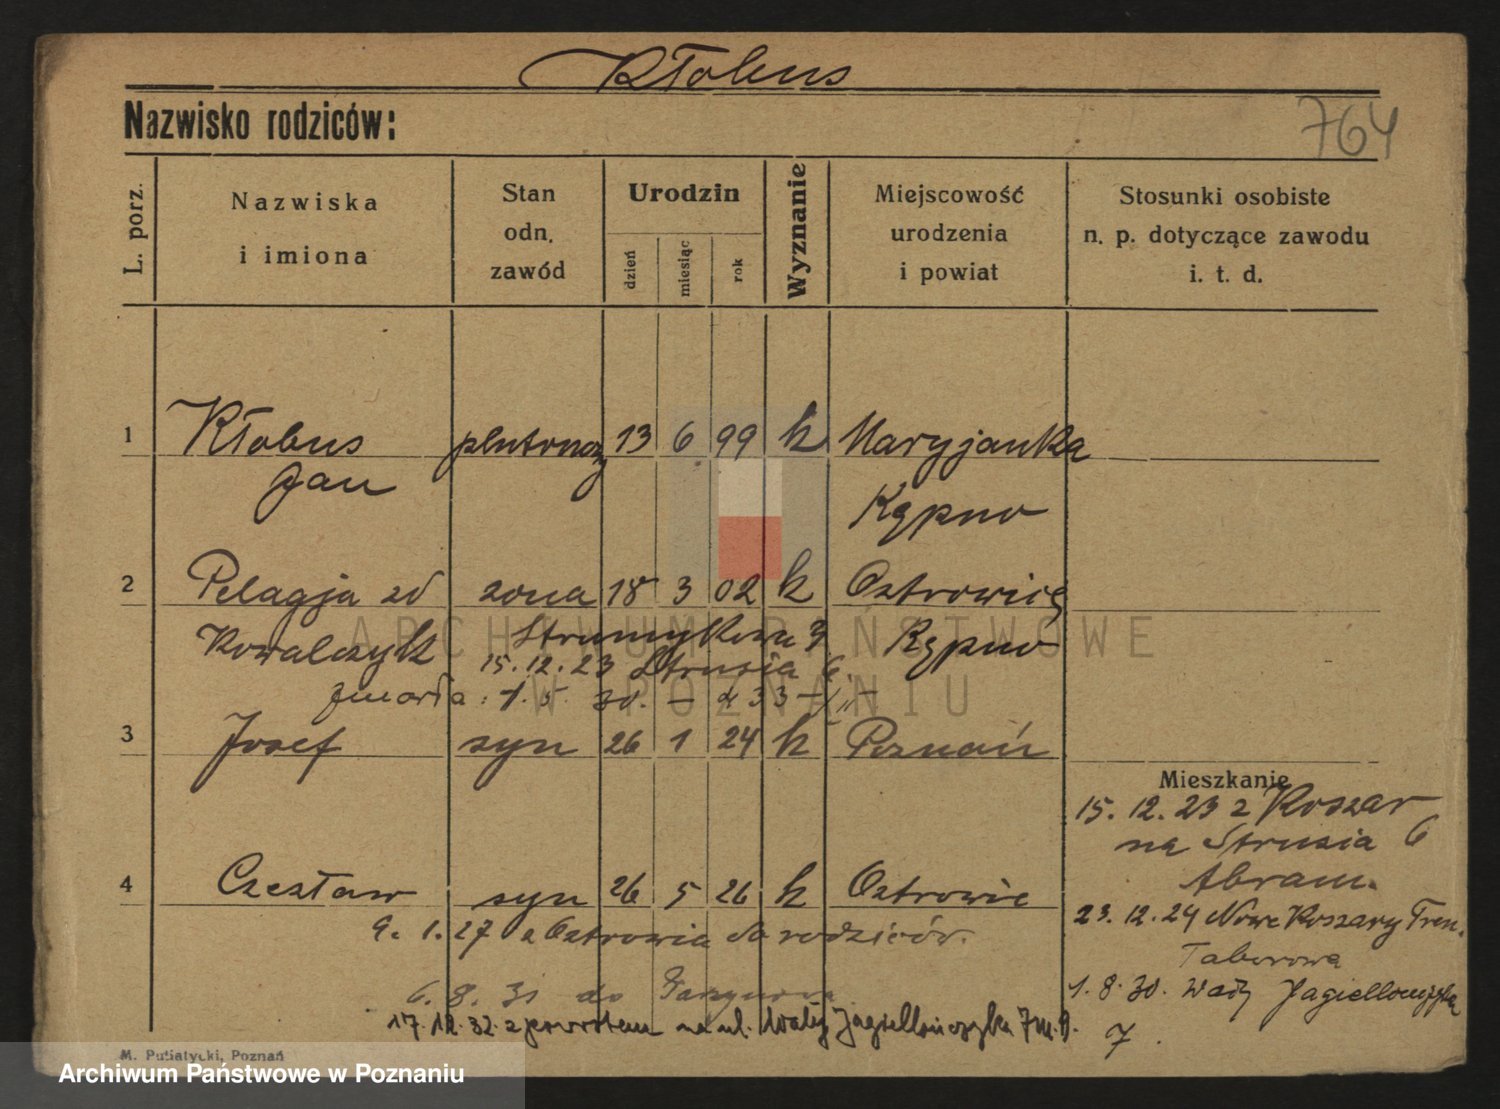 Kłobus
Nazwisko rodziców:
764
L. porz.
Nazwiska
i imiona
Stan
odn.
zawód
Urodzin
dzień
miesiąc
rok
Wyznanie
Miejscowość
urodzenia
i powiat
Stosunki osobiste
n. p. dotyczące zawodu
i. t. d.
1 Kłobus plutonowy 13 6 99 k Maryjanka
Jan Kępno
2 Pelagja zd żona 18 3 02 k Ostrowiec
Kowalczyk Strumykowa 3 Kępno
15.12.23 Strusia 6.
zmarła: 1.5. 30.
3 Josef syn 26 1 24 k Poznań
Mieszkanie
15.12.23 z Koszar
na Strusia 6
Abram.
4 Czesław syn 26 5 26 k Ostrowie
23.12.24 Nowe Koszary Tren.
9. 1. 27 z Ostrowia do rodziców.
Taborowa
6. 8. 31 do
1.8.30. Wały Jagiellończyka
17.12.32. z powrotem na ul. Wały Jagiellończyka 7 m. 9.
7.
M. Putiatycki, Poznań
Archiwum Państwowe w Poznaniu
ARCHIWUM PAŃSTWOWE
W POZNANIU